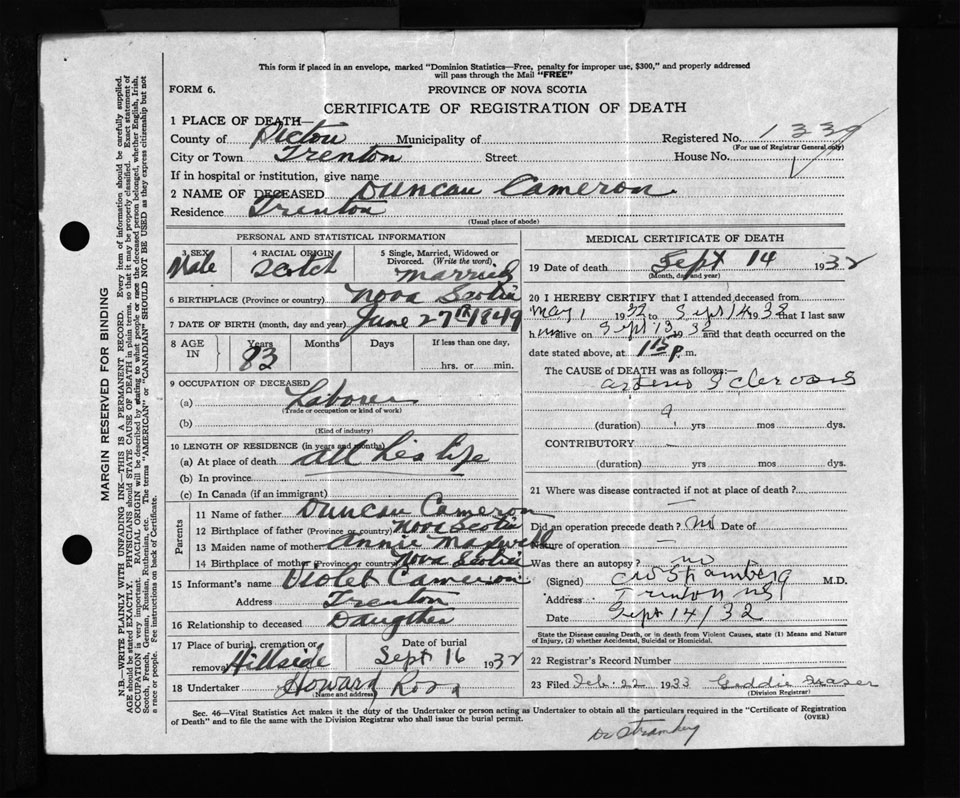 This form if placed in an envelope, marked "Dominion Statistics—Free, penalty for improper use, $300," and properly addressed
will pass through the Mail "FREE"
FORM 6.
PROVINCE OF NOVA SCOTIA
CERTIFICATE OF REGISTRATION OF DEATH
1 PLACE OF DEATH—
County of Pictou Municipality of Registered No. 1339
(For use of Registrar General only)
City or Town Trenton Street House No.
If in hospital or institution, give name
2 NAME OF DECEASED Duncan Cameron
Residence Trenton
(Usual place of abode)
PERSONAL AND STATISTICAL INFORMATION
3 SEX 4 RACIAL ORIGIN 5 Single, Married, Widowed or
Divorced. (Write the word)
Male Scotch Married
6 BIRTHPLACE (Province or country) Nova Scotia
7 DATE OF BIRTH (month, day and year) June 27th 1849
8 AGE IN Years Months Days If less than one day,
83 hrs. or min.
9 OCCUPATION OF DECEASED
(a) Laborer
(Trade or occupation or kind of work)
(b)
(Kind of industry)
10 LENGTH OF RESIDENCE (in years and months)
(a) At place of death all his life
(b) In province
(c) In Canada (if an immigrant)
Parents
11 Name of father Duncan Cameron
12 Birthplace of father (Province or country) Nova Scotia
13 Maiden name of mother Annie Maxwell
14 Birthplace of mother (Province or country) Nova Scotia
15 Informant's name Violet Cameron
Address Trenton
16 Relationship to deceased Daugther
17 Place of burial, cremation or Date of burial
removal Hillside Sept 16 1932
18 Undertaker Howard Ross
(Name and address)
MEDICAL CERTIFICATE OF DEATH
19 Date of death Sept 14 1932
(Month, day and year)
20 I HEREBY CERTIFY that I attended deceased from
May 1 1932 to Sept 14 1932 that I last saw
him alive on Sept 13 1932 and that death occurred on
date stated above, at p m.
The CAUSE of DEATH was as follows:—
(duration) yrs mos dys.
CONTRIBUTORY —
(duration) yrs mos dys.
21 Where was disease contracted if not at place of death?
—
Did an operation precede death? No Date of
Nature of operation —
Was there an autopsy? no
(Signed) M.D.
Address Trenton NS
Date Sept 14/32
State the Disease causing Death, or in death from Violent Causes, state (1) Means and Nature
of Injury, (2) whether Accidental, Suicidal or Homicidal.
22 Registrar's Record Number
23 Filed Feb. 22 1933 Fraser
(Division Registrar)
Sec. 46—Vital Statistics Act makes it the duty of the Undertaker or person acting as Undertaker to obtain all the particulars required in the "Certificate of Registration
of Death" and to file the same with the Division Registrar who shall issue the burial permit. (OVER)
Dr
MARGIN RESERVED FOR BINDING
N.B.—WRITE PLAINLY WITH UNFADING INK—THIS IS A PERMANENT RECORD. Every item of information should be carefully supplied.
AGE should be stated EXACTLY. PHYSICIANS should STATE CAUSE OF DEATH in plain terms, so that it may be properly classified. Exact statement of
OCCUPATION is very important. RACIAL ORIGIN will be described by stating to what people or race the deceased person belonged, whether English, Irish,
Scotch, French, German, Russian, Ruthenian, etc. The terms "AMERICAN" or "CANADIAN" SHOULD NOT BE USED as they express citizenship but not
a race or people. Fee instructions on back of Certificate.